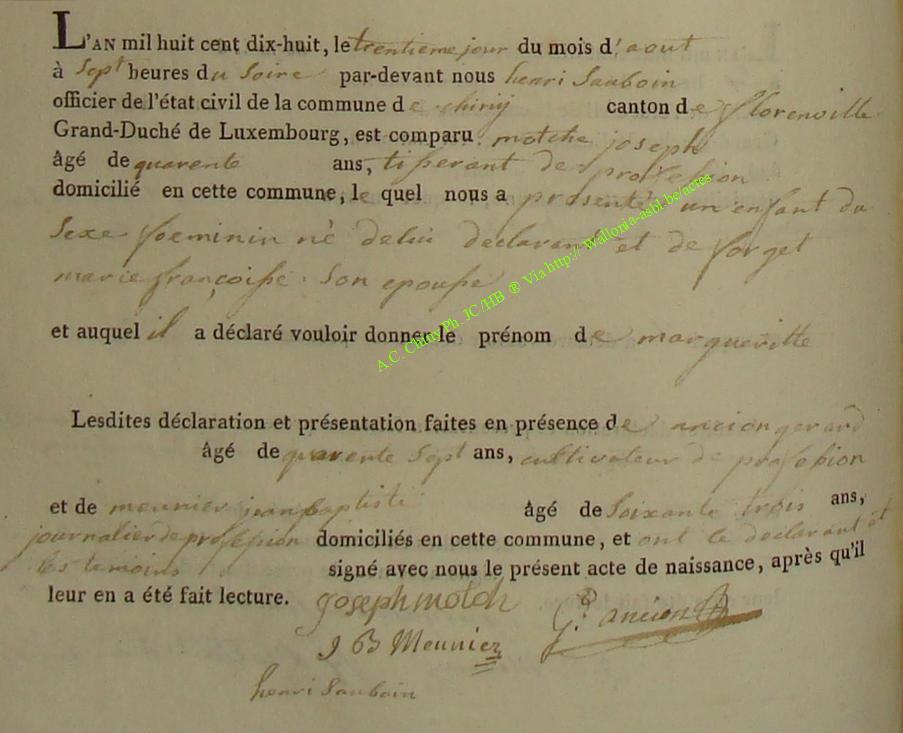 L'AN mil huit cent dix-huit, le trentieme jour du mois d'aout
à Sept heures du Soire par-devant nous henri Sauboin
officier de l'état civil de la commune de chiny canton de florenville
Grand-Duché de Luxembourg, est comparu motche joseph
âgé de quarente ans, tisserant de profession
domicilié en cette commune, le quel nous a présenté un enfant du
Sexe foeminin né de lui declarant et de forget
marie françoisse Son epousse
et auquel il a déclaré vouloir donner le prénom de margueritte
A.C. Chiny Ph. JC/HB ® Via http://wallonia-asbl.be/actes
Lesdites déclaration et présentation faites en présence de ancion gerard
âgé de quarente Sept ans, cultivateur de profession
et de meunier jean baptiste âgé de Soixante trois ans,
journalier de profession domiciliés en cette commune, et ont le declarant et
les temoins signé avec nous le présent acte de naissance, après qu'il
leur en a été fait lecture. joseph motch
G.d ancion
J B Meunier
henri Sauboin